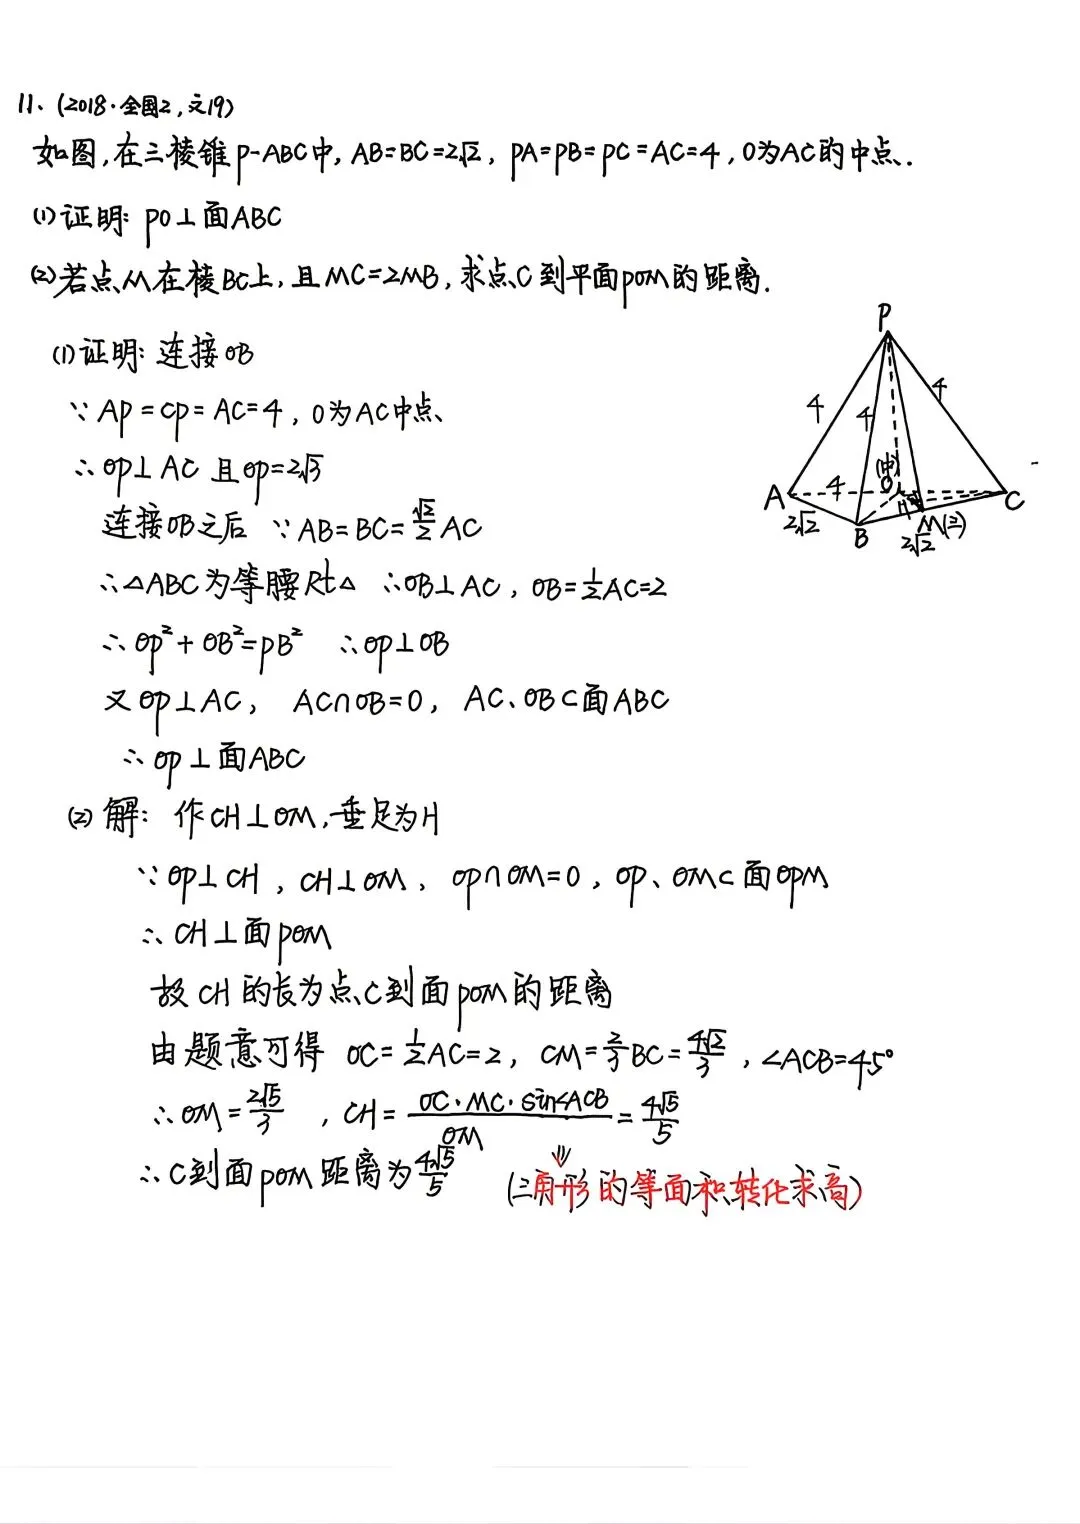 11、(2018·全国2,文19)
如图,在三棱锥p-ABC中,AB=BC=2√2,pA=pB=pC=AC=4,O为AC的中点.
(1)证明:pO⊥面ABC
(2)若点M在棱BC上,且MC=2MB,求点C到平面pOM的距离.
(1)证明:连接OB
∵Ap=Cp=AC=4,O为AC中点、
∴Op⊥AC且Op=2√3
连接OB之后 ∵AB=BC=√2/2 AC
∴△ABC为等腰Rt△ ∴OB⊥AC,OB=1/2AC=2
∴Op²+OB²=pB² ∴Op⊥OB
又Op⊥AC,AC∩OB=O,AC、OB⊂面ABC
∴Op⊥面ABC
P
4
4
4
A
4
(中)
O
H
C
2√2
B
M(三)
2√2
(2)解:作CH⊥OM,垂足为H
∵Op⊥CH,CH⊥OM,Op∩OM=O,Op、OM⊂面OpM
∴CH⊥面pOM
故CH的长为点C到面pOM的距离
由题意可得 OC=1/2AC=2,CM=2/3BC=4√2/3,∠ACB=45°
∴OM=2√5/3,CH=OC·MC·sin∠ACB/OM=4√5/5
∴C到面pOM距离为4√5/5
(三角形的等面积转化求高)